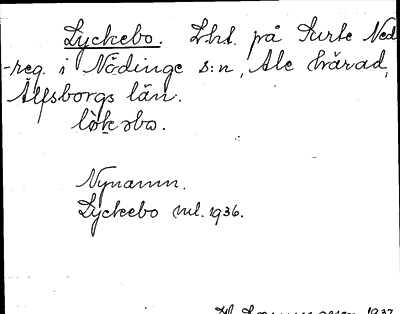 Lyckebo. Lht. på Surte Ned
-reg. i Nödinge s:n, Ale härad,
Älfsborgs län.
Nynamn.
Lyckebo ml. 1936.
1937